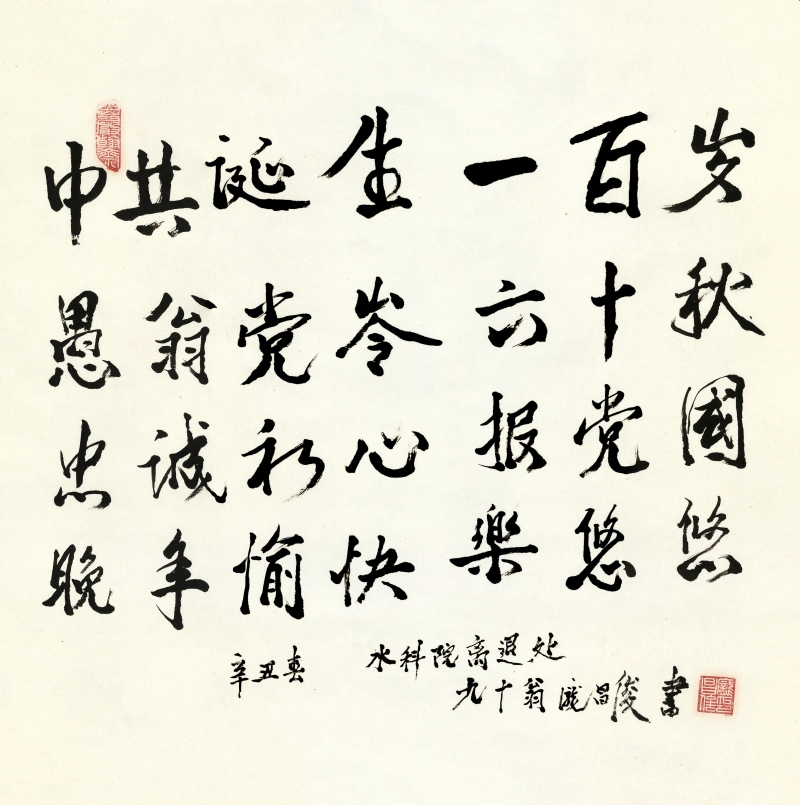 中共诞生一百岁
愚翁党岺六十秋
忠诚初心报党國
晚年愉快樂悠悠
辛丑春 水科院离退处
九十翁 昌俊 书